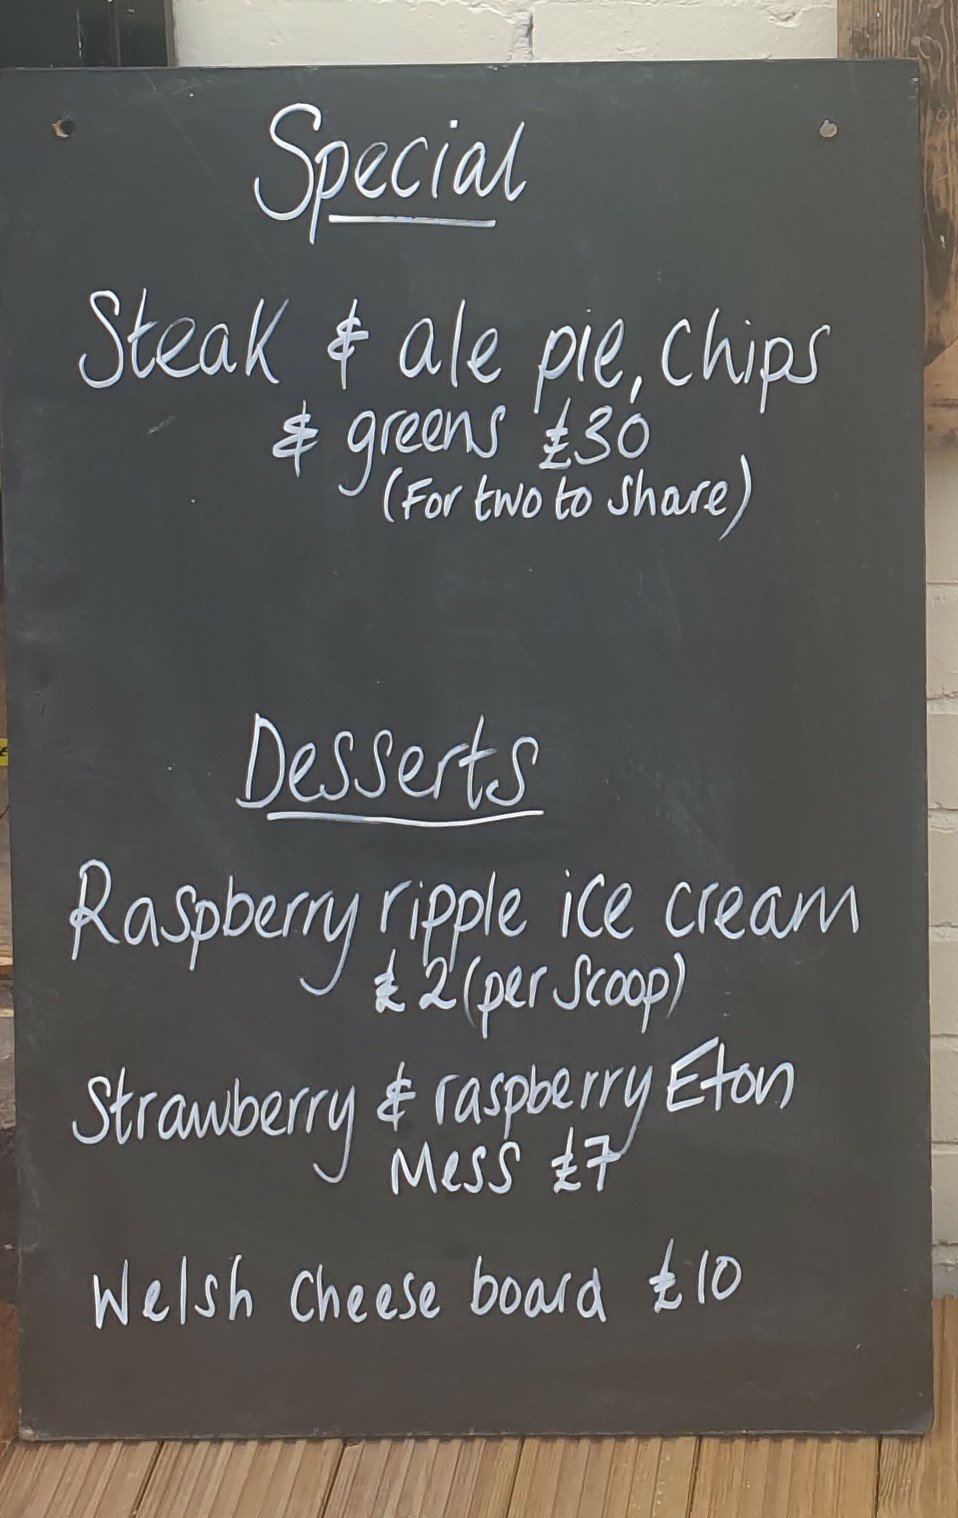 Special
Steak & ale pie, chips
& greens £30
(For two to share)
Desserts
Raspberry ripple ice cream
£2 (per scoop)
Strawberry & raspberry Eton
Mess £7
Welsh cheese board £10